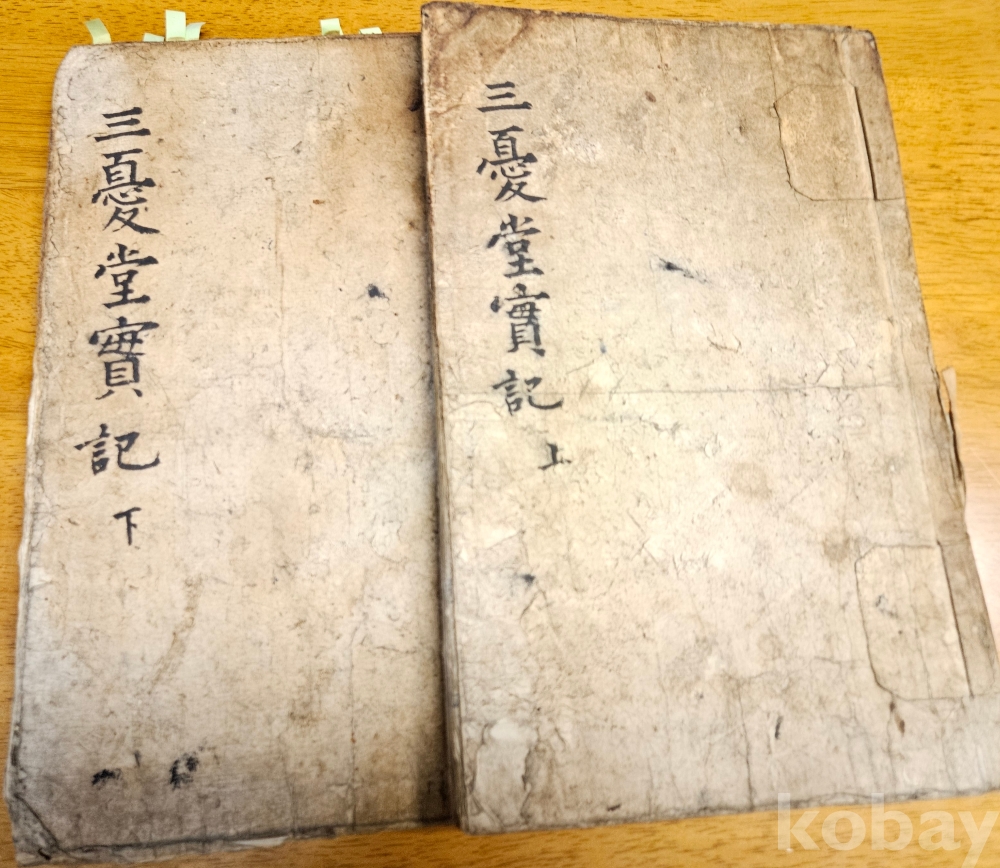 三憂堂實記 上
三憂堂實記 下
kobay